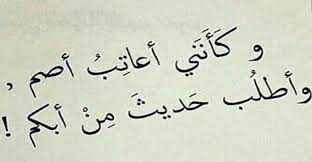 و كَأَنَّني أعاتِبُ أصم ,
وأطلُب حَديثَ مِنْ أبكم !